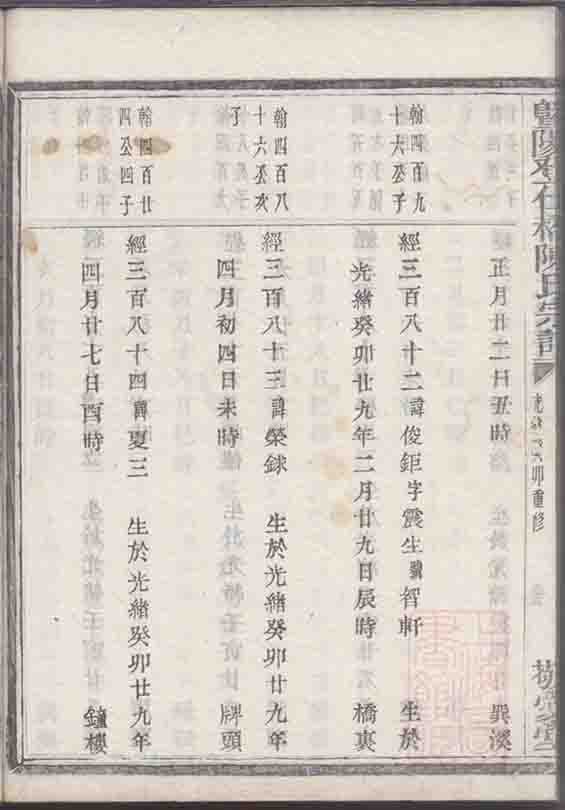 陳氏宗譜
卯重修
正月廿二日丑時 巽溪
翰四百九
十六公子
經三百八十二諱俊鉅字震生號智軒 生於
光緒癸卯廿九年二月廿九日辰時 橋裏
翰四百八
十六公次
子
經三百八十三諱榮銶 生於光緒癸卯廿九年
四月初四日未時 牌頭
翰四百廿
四公四子
經三百八十四諱夏三 生於光緒癸卯廿九年
四月廿七日酉時 鐘樓